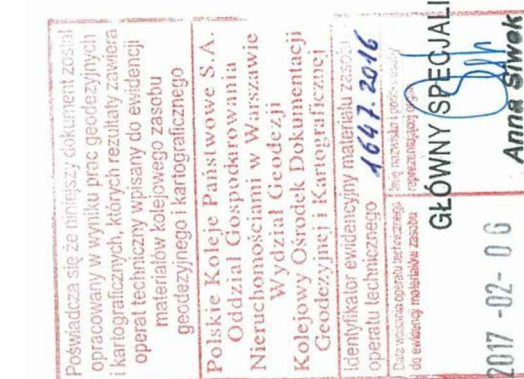 Poświadcza się że niniejszy dokument został
opracowany w wyniku prac geodezyjnych
i kartograficznych, których rezultaty zawiera
operat techniczny wpisany do ewidencji
materiałów kolejowego zasobu
geodezyjnego i kartograficznego
Polskie Koleje Państwowe S.A.
Oddział Gospodarowania
Nieruchomościami w Warszawie
Wydział Geodezji
Kolejowy Ośrodek Dokumentacji
Geodezyjnej i Kartograficznej
Identyfikator ewidencyjny materiału zasobu
operatu technicznego 1647.2016
Data wpisania operatu technicznego
do ewidencji materiałów zasobu
Imię nazwisko i podpis osoby
reprezentującej organ
GŁÓWNY SPECJALI
Anna Siwek
2017 -02- 06